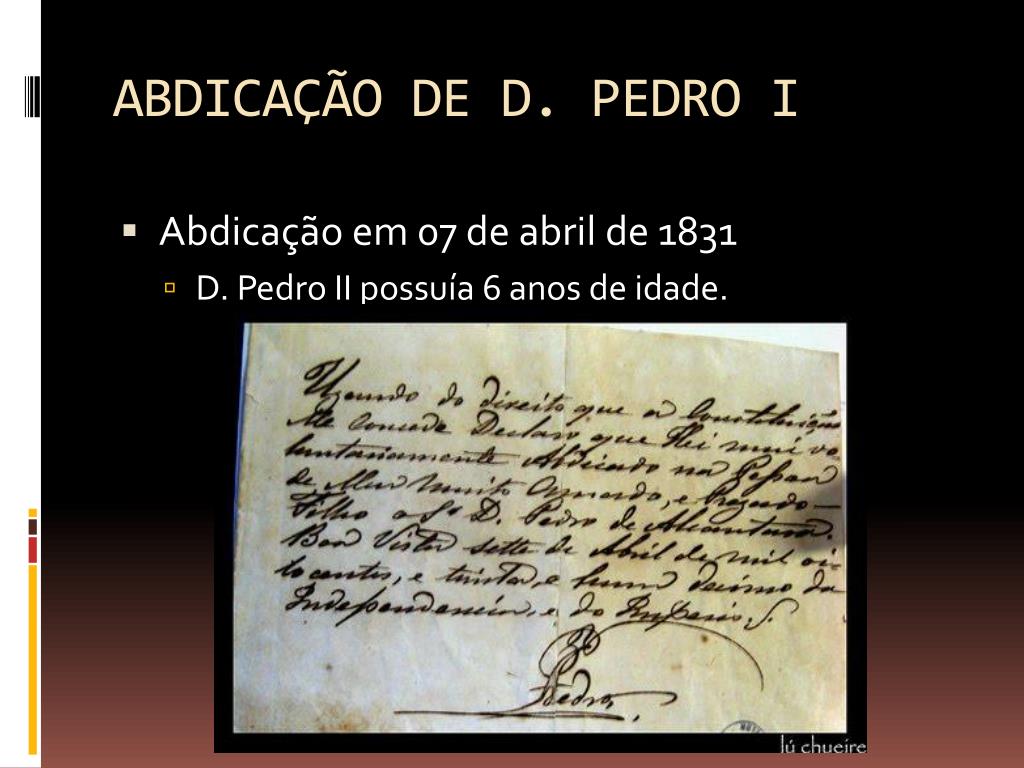 ABDICAÇÃO DE D. PEDRO I
Abdicação em 07 de abril de 1831
D. Pedro II possuía 6 anos de idade.
Uzando do direito que a Constituição
Me concede Declaro que Hei mui vo
luntariamente Abdicado na Pessoa
de Meu muito Amado, e Prezado
Filho o Sr. D. Pedro de Alcantara.
Boa Vista sette de Abril de mil oi-
tocentos, e trinta, e hum decimo da
Independencia, e do Imperio.
Pedro
lú chueire